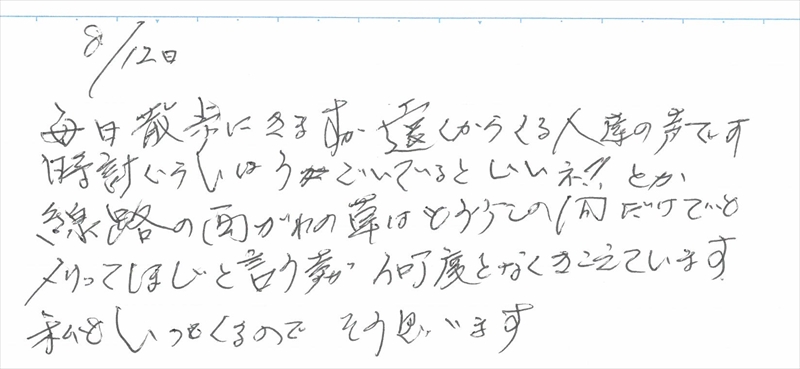 8/12日
毎日散歩にきますが遠くからくる人達の声です
時計ぐらいはうごいているといいネ!! とか
線路の両がわの草はどうろの何だけでも
メリってほしいと言う声が何度となくきこえています
私もいつもくるのでそう思います